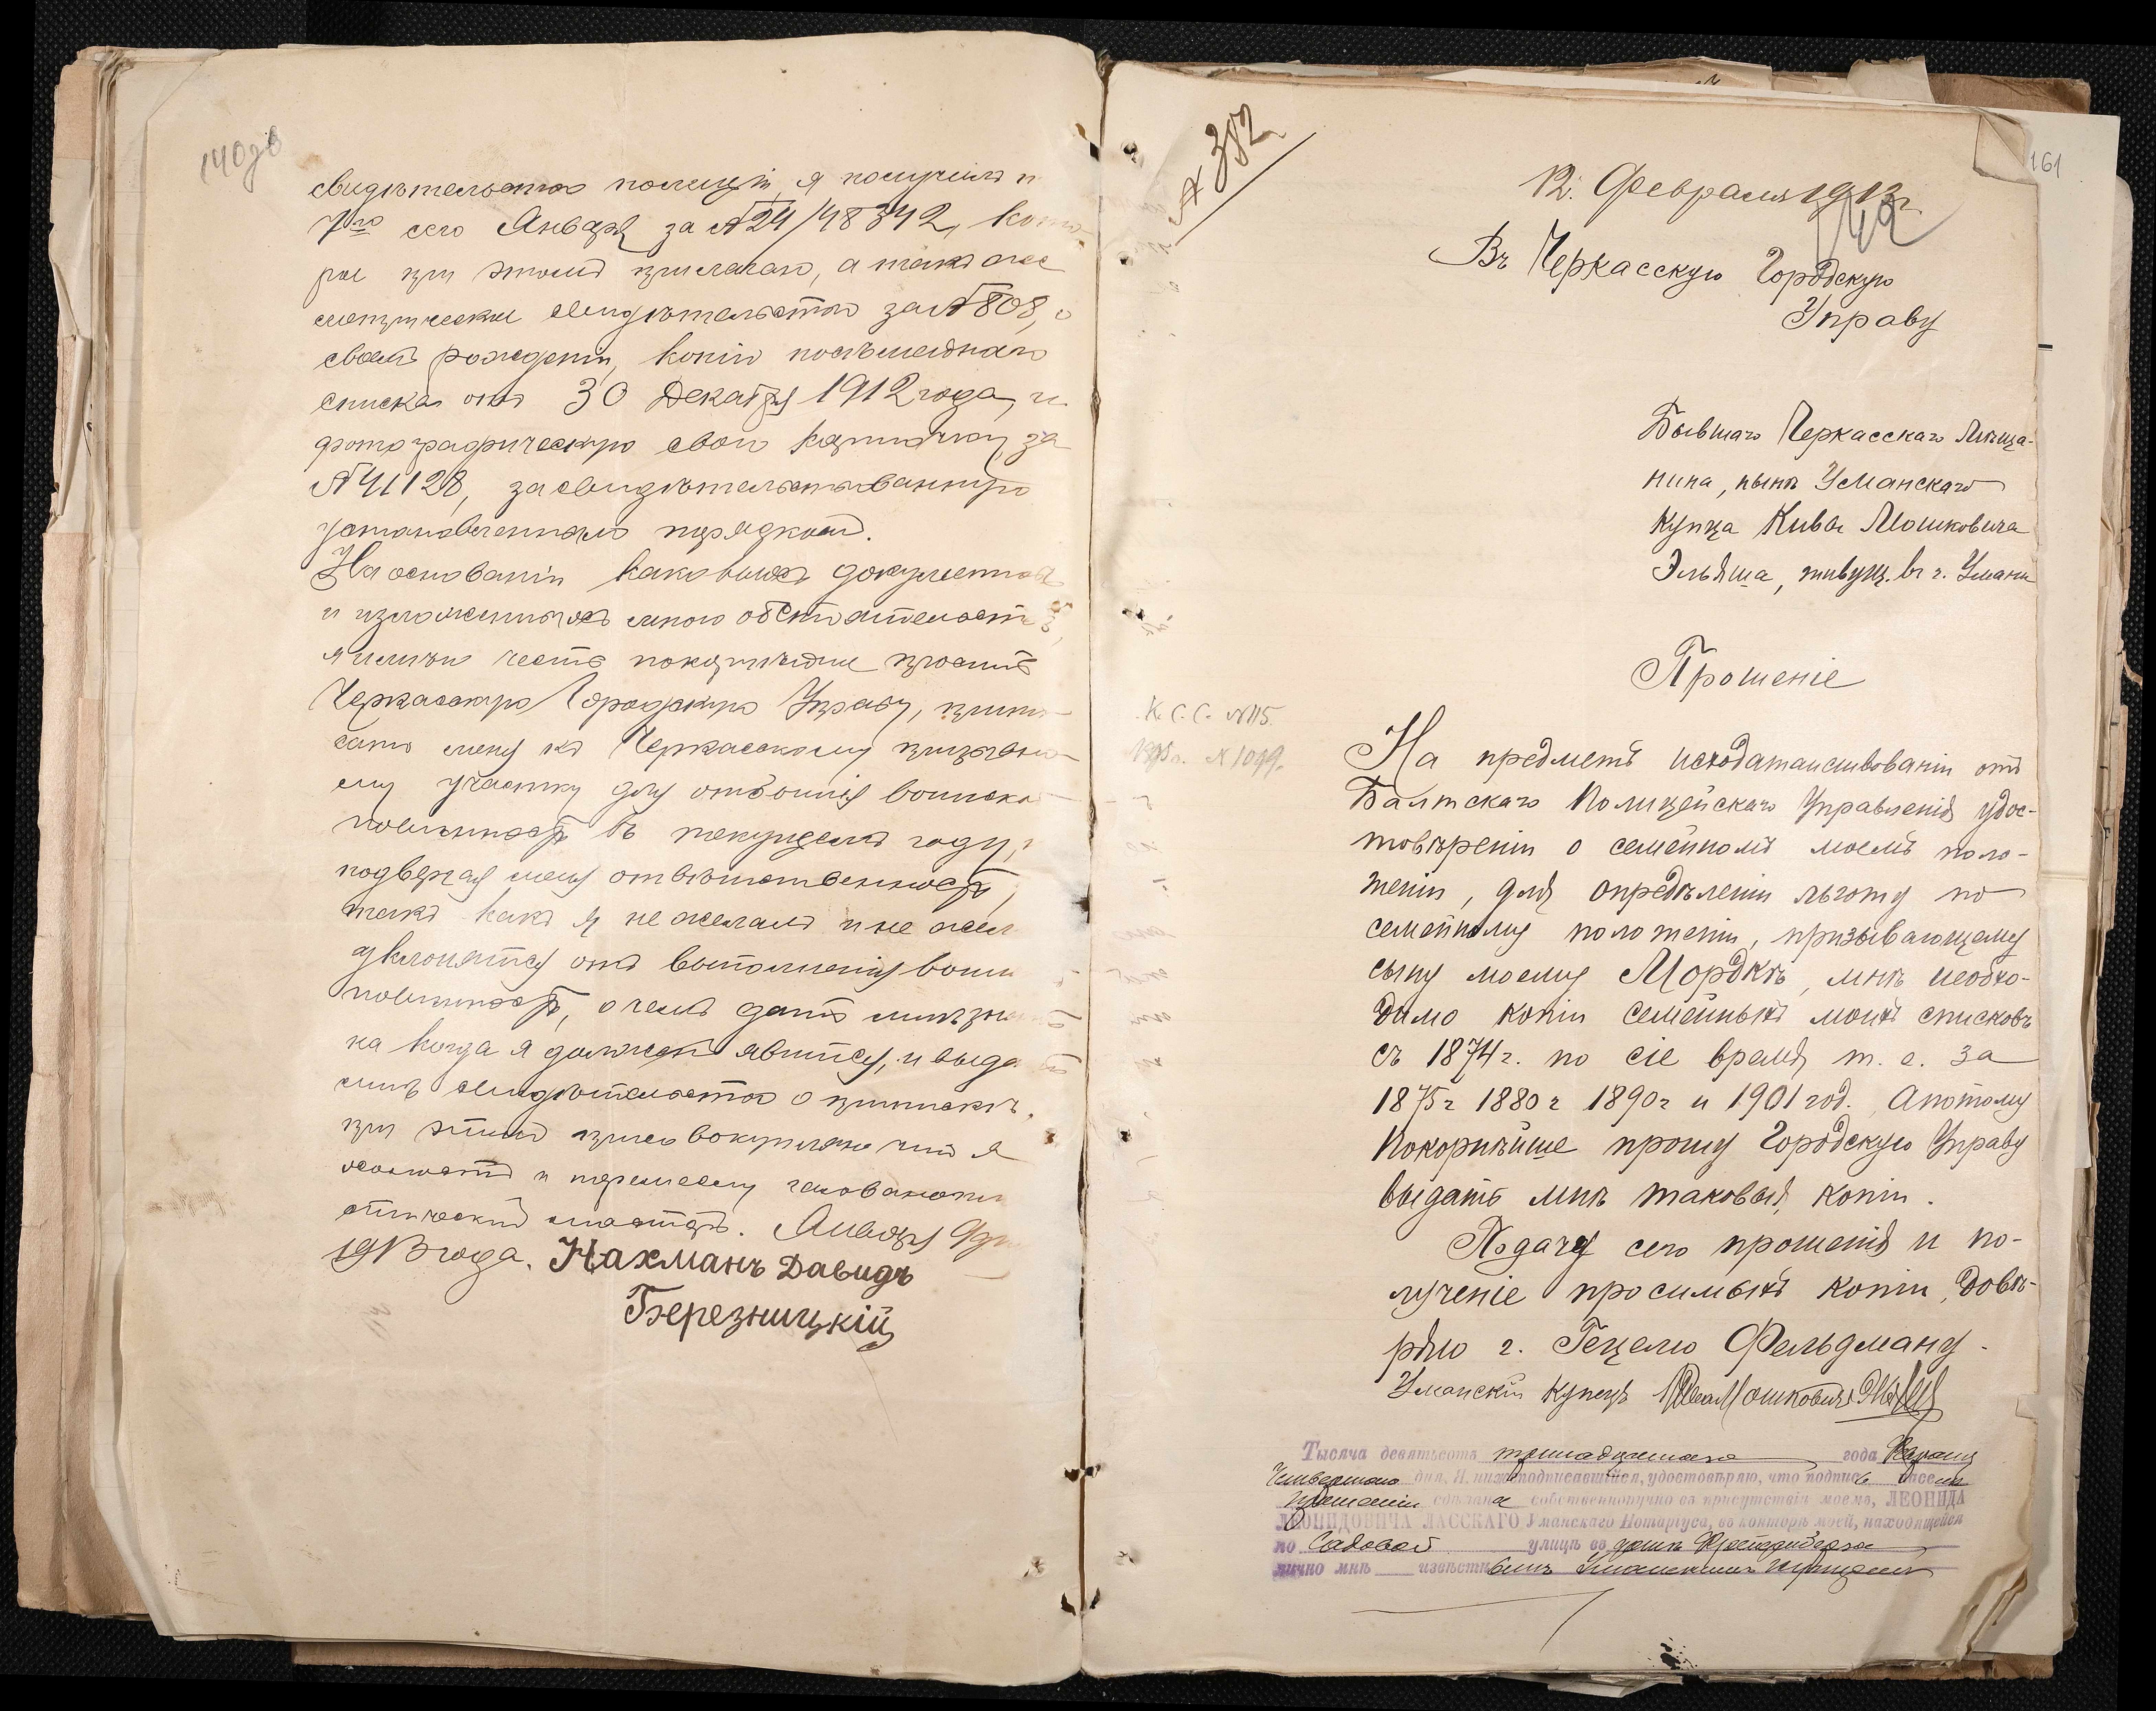 140об
свидѣтельство полиціи, я получилъ
7го сего Января за №24/48342, кото-
рое при этомъ прилагаю, а также
метрическое свидѣтельство за №808, о
своемъ рожденіи, копію посемейнаго
списка отъ 30 Декабря 1912 года, и
фотографическую свою карточку за
№41128, засвидѣтельствованную
установленнымъ порядкомъ.
На основаніи каковыхъ документовъ
и изложенныхъ мною обстоятельствъ,
я имѣю честь покорнѣйше просить
Черкасскую Городскую Управу, припи-
сать меня къ Черкасскому призывно-
му участку для отбытія воинской
повинности въ текущемъ году,
подвергая меня отвѣтственности,
такъ какъ я не желалъ и не жел
уклоняться отъ выполненія воин
повинности, о чемъ дать мнѣ
ка когда я долженъ явиться, и выда
мнѣ свидѣтельство о припискѣ,
при этомъ присовокупляю что я
холостъ и
мастеръ. Января 9 дня
1913 года. Нахманъ Давидъ
Березницкій
№ 382
161
12. Февраля 1913 г.
149
Въ Черкасскую Городскую
Управу
Бывшаго Черкасскаго Мѣща-
нина, нынѣ Уманскаго
Купца Кивы Мошковича
Эльяша, живущ. въ г. Умани
Прошеніе
К. С. С. №115.
№ 1099.
На предметъ исходатайствованіи отъ
Балтскаго Полицейскаго Управленія удос-
товѣреніи о семейномъ моемъ поло-
женіи, для опредѣленіи льготу по
семейному положеніи, призывающему
сыну моему Мордкѣ, мнѣ необхо-
димо копіи семейныхъ моихъ списковъ
съ 1874 г. по сіе время т. е. за
1875 г 1880 г 1890 г и 1901 год. Апотому
Покорнѣйше прошу Городскую Управу
выдать мнѣ таковыя, копіи.
Подачу сего прошенія и по-
лученіе просимыхъ копіи, довѣ-
ряю г. Гецелю Фельдману.
Уманскій купецъ Кива Мошковичъ Эльяшъ
Тысяча девятьсотъ тринадцатаго года Января
Четвертаго дня, Я, нижеподписавшійся, удостовѣряю, что подпись на семъ
прошеніи сдѣлана собственноручно въ присутствіи моемъ, ЛЕОНИДА
ЛЕОНИДОВИЧА ЛАССКАГО Уманскаго Нотаріуса, въ конторѣ моей, находящейся
по Садовой улицѣ въ домѣ
лично мнѣ извѣстнымъ Уманскимъ купцомъ